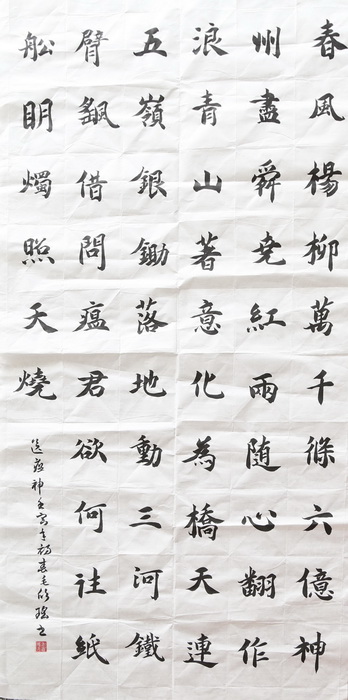 春風楊柳萬千條六億神
州盡舜堯紅雨随心翻作
浪青山著意化為橋天連
五嶺銀鋤落地動三河鐵
臂借問瘟君欲何往紙
舩明燭照天燒
送瘟神